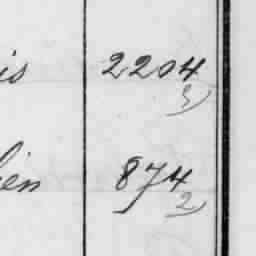 is 2204
3)
ien 874
2)